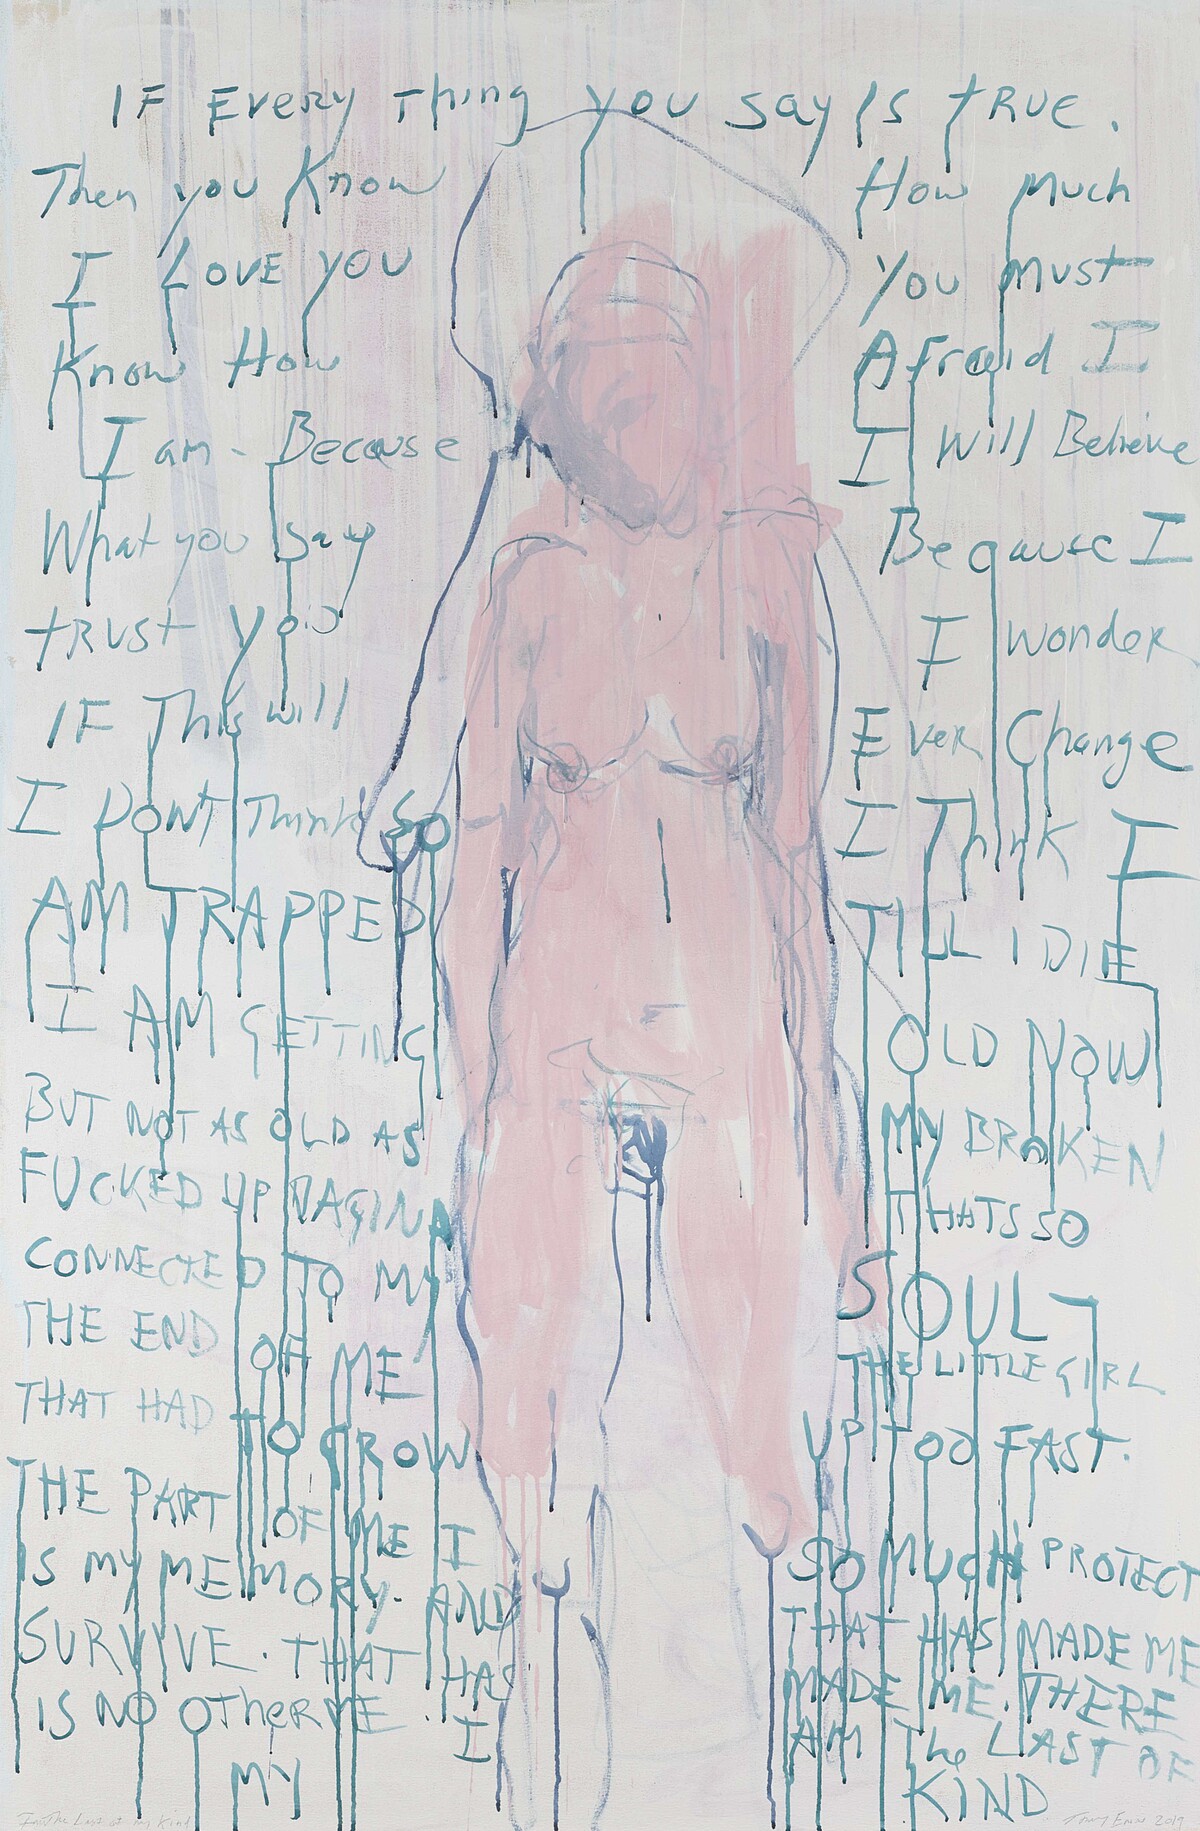 IF Every Thing you say is tRUE.
Then you Know How Much
I LOVE YOU You Must
Know How Afraid I
I am - Because I Will Believe
What you Say Because I
tRUSt you I wonder
IF This will Ever Change
I DONT Think So I ThinK I
AM TRAPPED TILL I DIE
I AM GETTING OLD NOW
BUT NOT AS OLD AS MY BROKEN
FUCKED UP VAGINA THATS SO
CONNECTED TO MY SOUL -
THE END OF ME THE LITTLE GIRL
THAT HAD TO GROW UP TOO FAST.
THE PART OF ME I SO MUCH PROTECT
IS MY MEMORY. AND THAT HAS MADE ME
SURVIVE. THAT HAS MADE ME. THERE
IS NO OTHeR ME. I AM The LAST OF
MY KIND
I'm The Last of my Kind Tracey Emin 2019